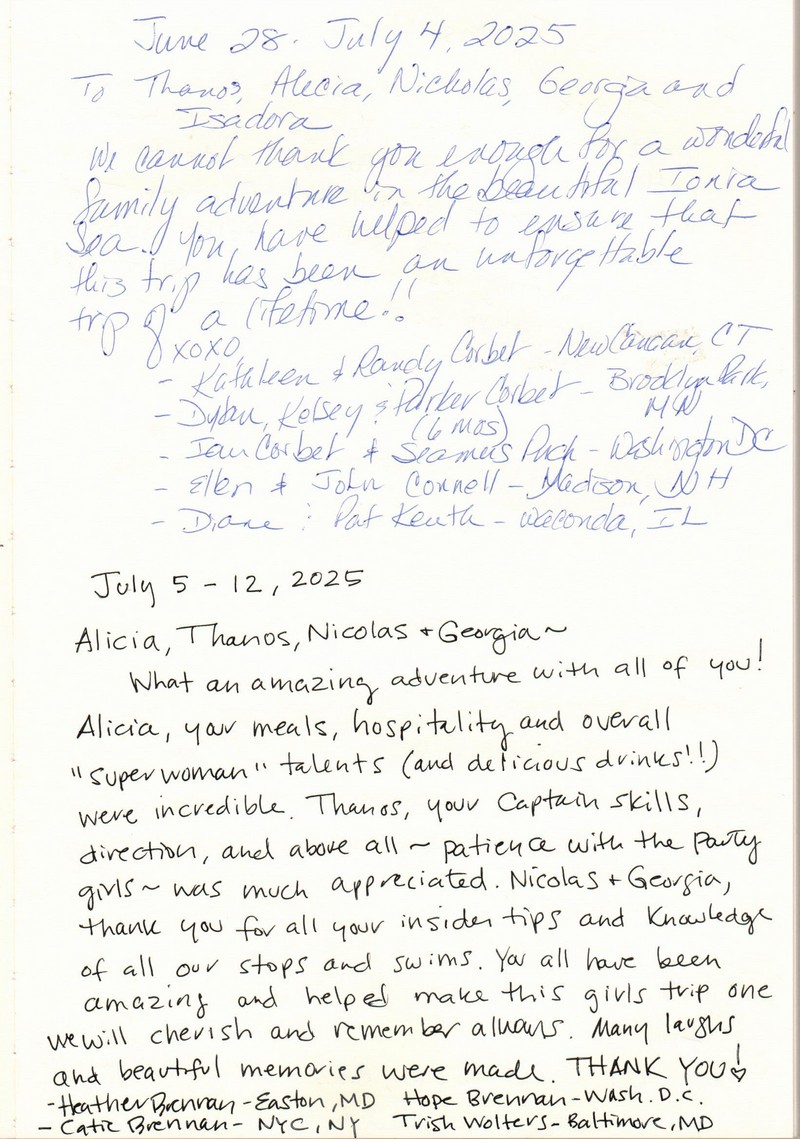 June 28 - July 4, 2025
To Thanos, Alecia, Nicholas, Georgia and
Isadora
We cannot thank you enough for a wonderful
family adventure in the beautiful Ionia
Sea. You have helped to ensure that
this trip has been an unforgettable
trip of a lifetime!!
XOXO,
- Kathleen & Randy Corbet - New Canaan, CT
- Dylan, Kelsey & Parker Corbet - Brooklyn Park,
(6 mos) MN
- Ian Corbet & Seamus - Washington DC
- Ellen & John Connell - Madison, NH
- Diane & Pat - Waconda, IL
July 5 - 12, 2025
Alicia, Thanos, Nicolas + Georgia ~
What an amazing adventure with all of you!
Alicia, your meals, hospitality and overall
"superwoman" talents (and delicious drinks!!)
were incredible. Thanos, your Captain skills,
direction, and above all ~ patience with the party
girls ~ was much appreciated. Nicolas + Georgia,
thank you for all your insider tips and knowledge
of all our stops and swims. You all have been
amazing and helped make this girls trip one
we will cherish and remember always. Many laughs
and beautiful memories were made. THANK YOU!
- Heather Brennan - Easton, MD Hope Brennan - Wash. D.C.
- Catie Brennan - NYC, NY Trish Wolters - Baltimore, MD